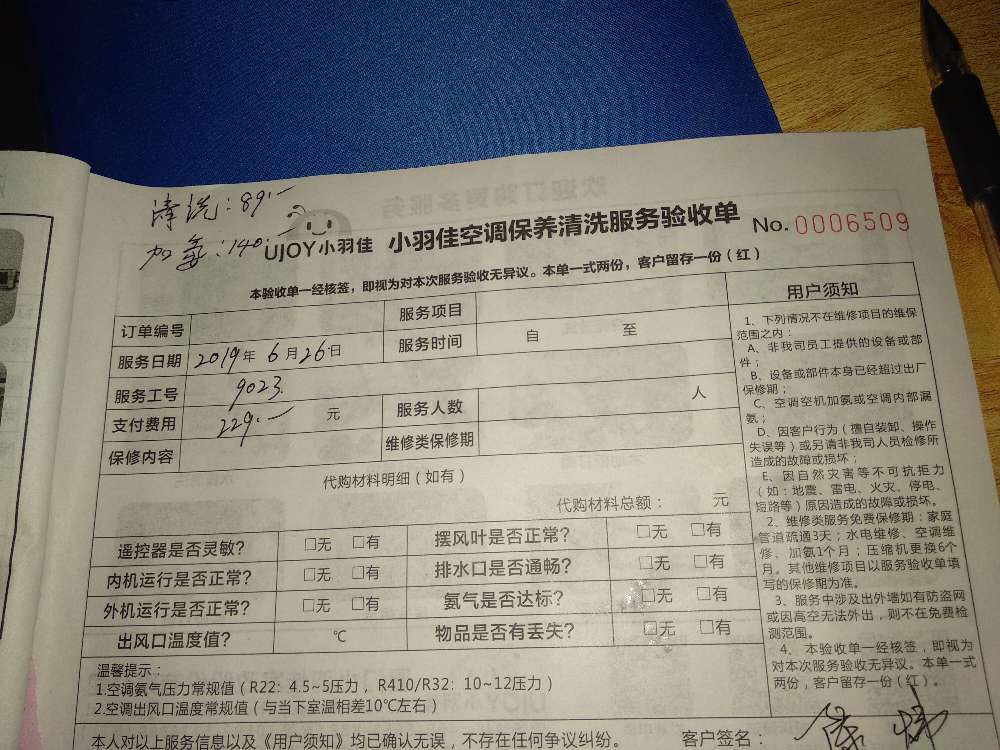 清洗：89.—
加每：140.—
UJOY小羽佳 小羽佳空调保养清洗服务验收单 No. 0006509
本验收单一经核签，即视为对本次服务验收无异议。本单一式两份，客户留存一份（红）
订单编号 服务项目
服务日期 2019年 6月 26日 服务时间 自 至
服务工号 9023.
支付费用 229.— 元 服务人数 人
保修内容 维修类保修期
代购材料明细（如有）
代购材料总额： 元
遥控器是否灵敏? □无 □有 摆风叶是否正常? □无 □有
内机运行是否正常? □无 □有 排水口是否通畅? □无 □有
外机运行是否正常? □无 □有 氨气是否达标? □无 □有
出风口温度值? ℃ 物品是否有丢失? □无 □有
温馨提示：
1.空调氨气压力常规值（R22: 4.5~5压力，R410/R32: 10~12压力）
2.空调出风口温度常规值（与当下室温相差10℃左右）
本人对以上服务信息以及《用户须知》均已确认无误，不存在任何争议纠纷。 客户签名：
用户须知
1、下列情况不在维修项目的维保
范围之内：
A、非我司员工提供的设备或部
件；
B、设备或部件本身已经超过出厂
保修期；
C、空调空机加氨或空调内部漏
氨；
D、因客户行为（擅自装卸、操作
失误等）或另请非我司人员检修所
造成的故障或损坏；
E、因自然灾害等不可抗拒力
（如：地震、雷电、火灾、停电、
短路等）原因造成的故障或损坏。
2、维修类服务免费保修期：家庭
管道疏通3天；水电维修、空调维
修、加氨1个月；压缩机更换6个
月。其他维修项目以服务验收单填
写的保修期为准。
3、服务中涉及出外墙如有防盗网
或因高空无法外出，则不在免费检
测范围。
4、本验收单一经核签，即视为
对本次服务验收无异议。本单一式
两份，客户留存一份（红）。